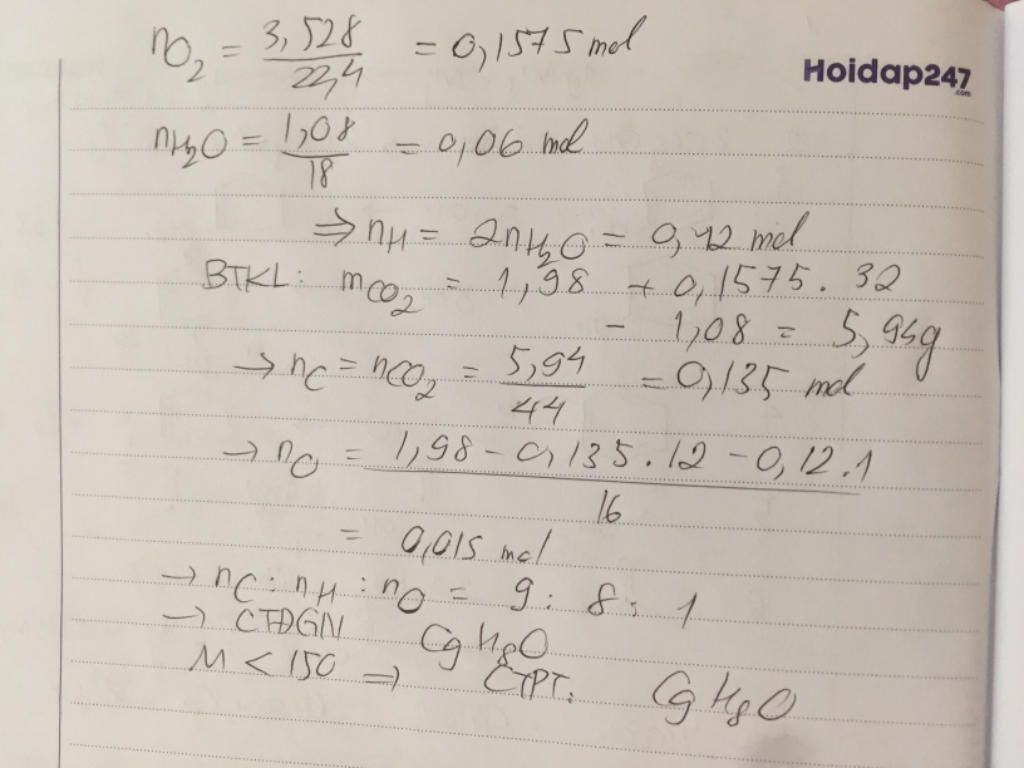 nO2 = 3,528 / 22,4 = 0,1575 mol
Hoidap247
.com
nH2O = 1,08 / 18 = 0,06 mol
⇒ nH = 2nH2O = 0,12 mol
BTKL: mCO2 = 1,98 + 0,1575 . 32
- 1,08 = 5,94g
→ nC = nCO2 = 5,94 / 44 = 0,135 mol
→ nO = 1,98 - 0,135 . 12 - 0,12 . 1 / 16
= 0,015 mol
→ nC : nH : nO = 9 : 8 : 1
→ CTĐGN C9H8O
M < 150 ⇒ CTPT: C9H8O